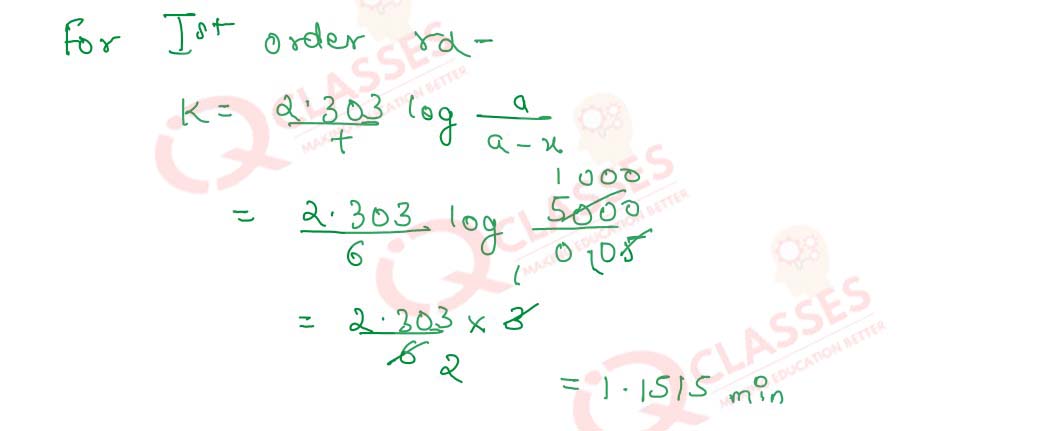 For Ist order rd -
K = 2.303 / t log a / a - x
= 2.303 / 6 log 5000 / 0,05
1000
= 2.303 / 6 × 3
1
2
= 1.1515 min
IQ CLASSES
MAKING EDUCATION BETTER
IQ CLASSES
MAKING EDUCATION BETTER
IQ CLASSES
MAKING EDUCATION BETTER